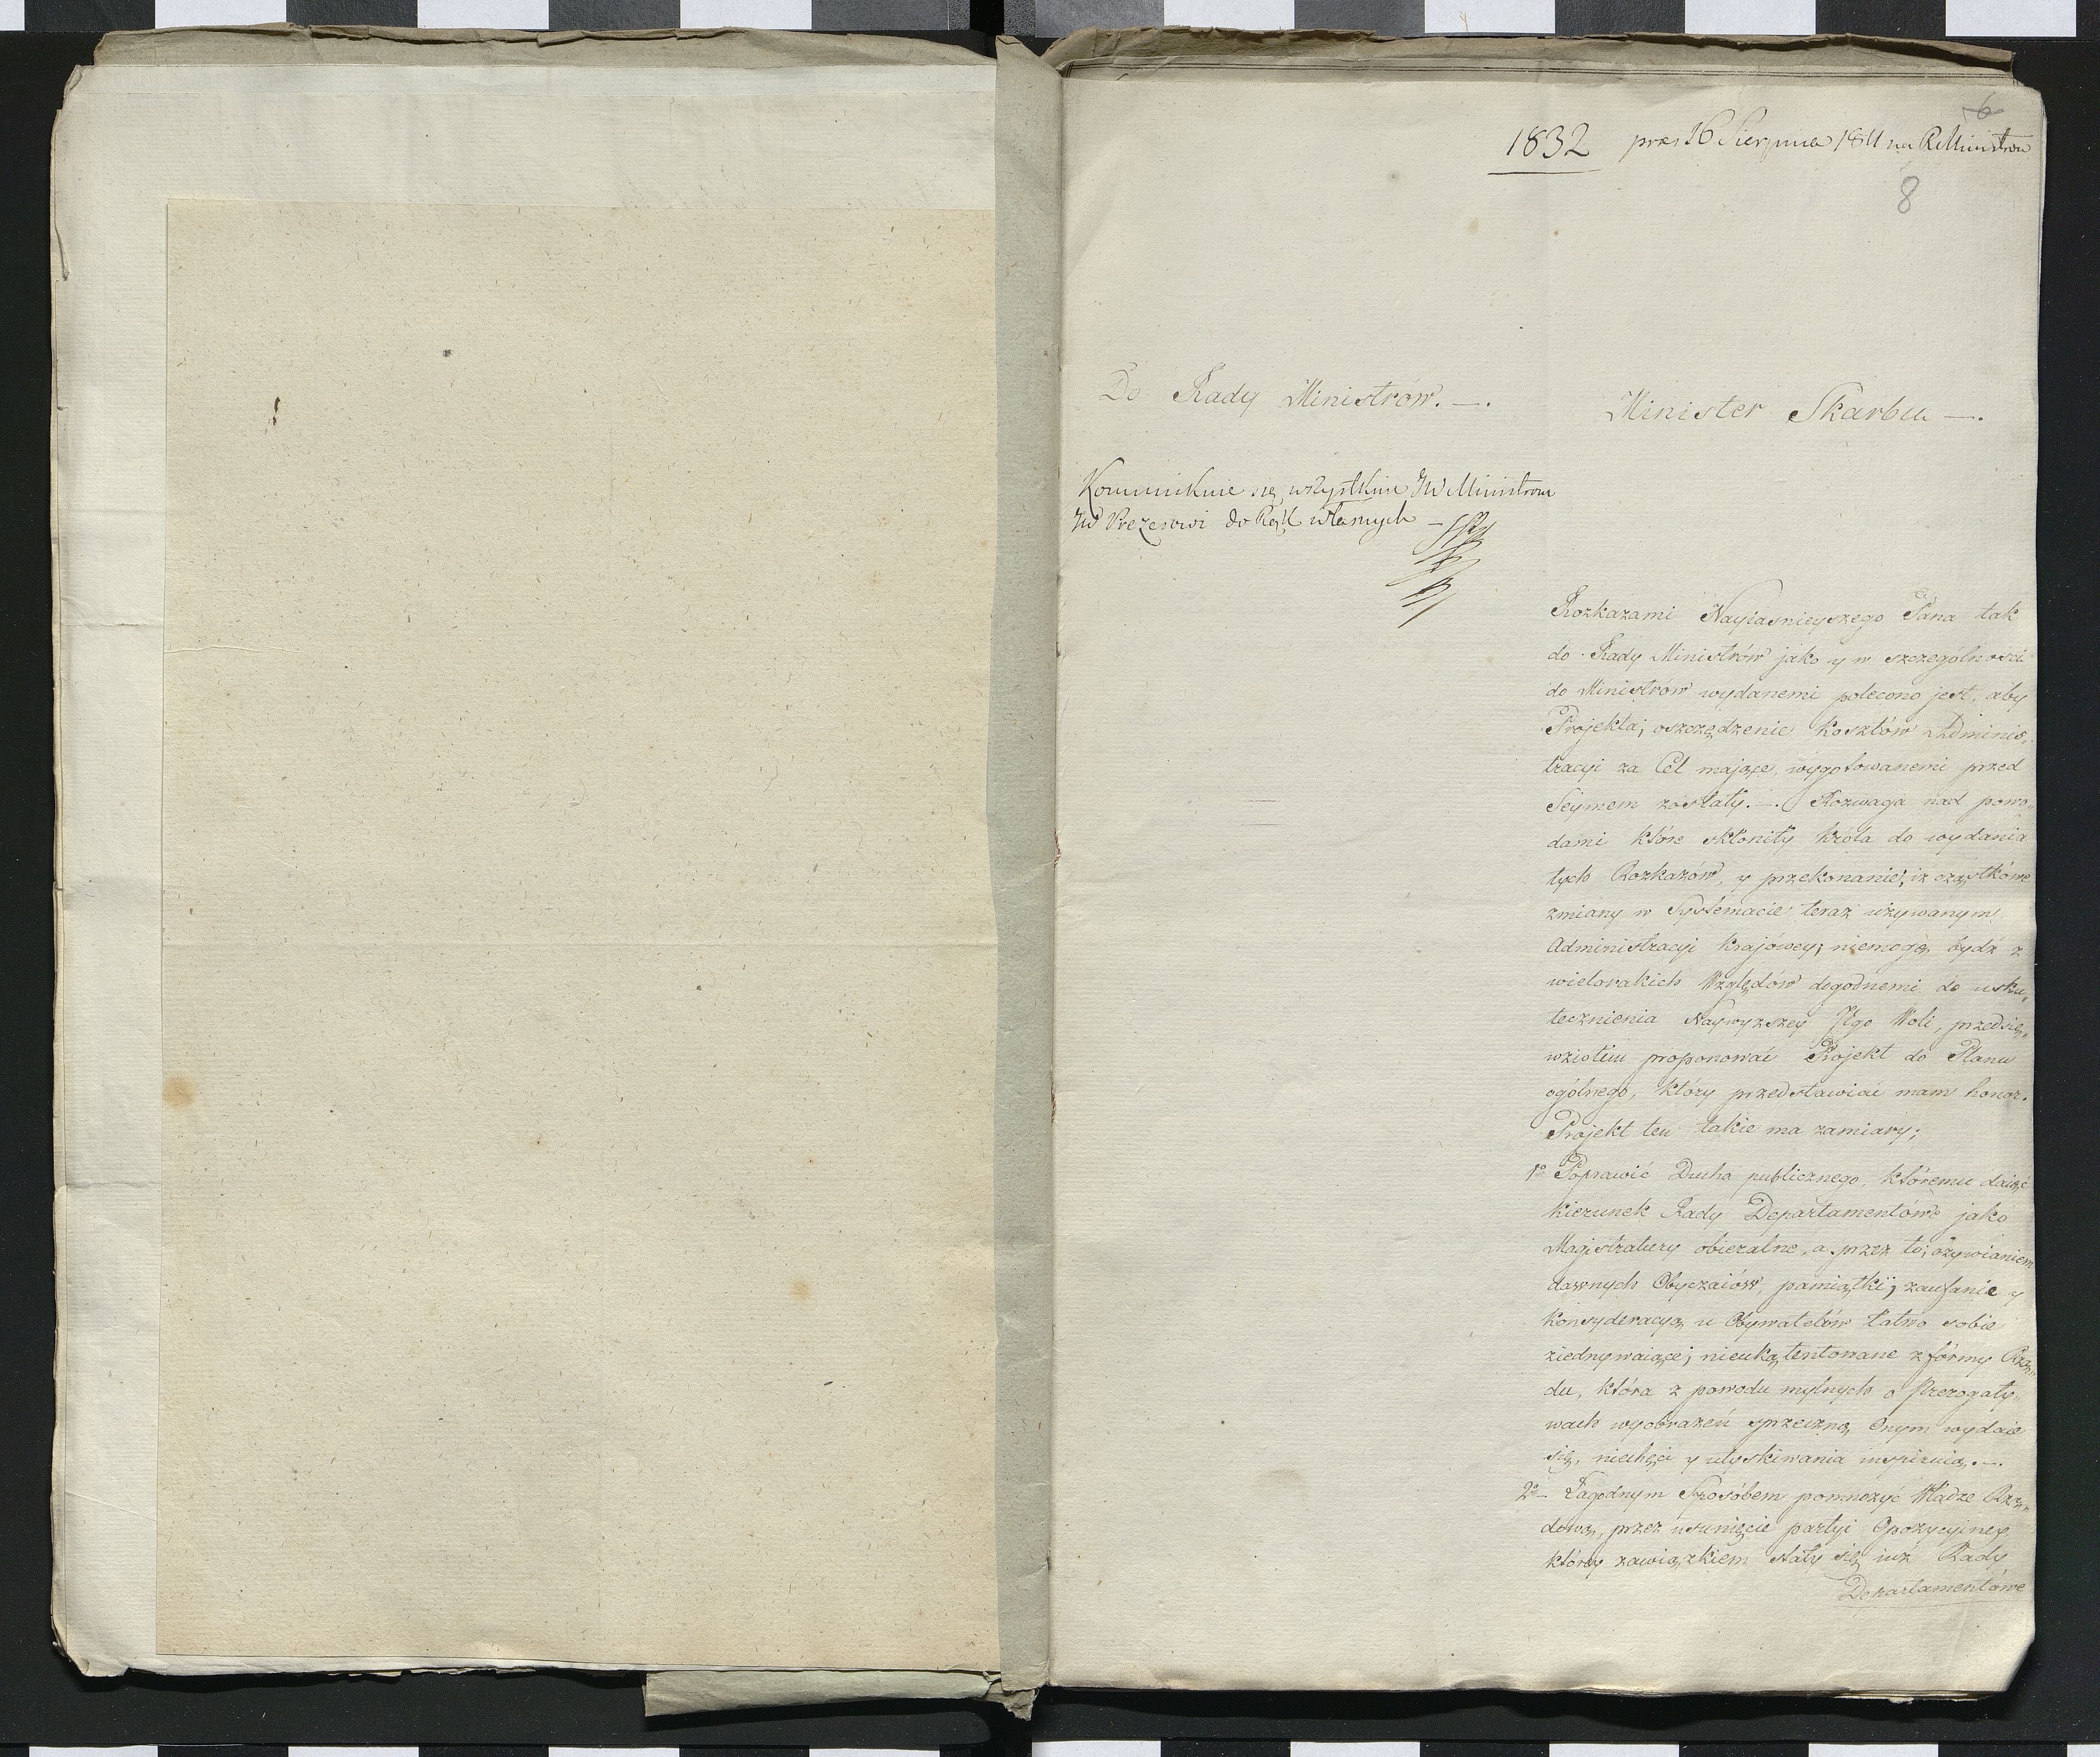 6
1832 prez 16 Sierpnia 1811 na R Ministrow
8
Do Rady Ministrów. —.
Minister Skarbu —.
Kommunikuie się wszystkim JW Ministrom
JW Prezesowi do Rąk własnych —
Rozkazami Nayiasnieyszego Pana tak
do Rady Ministrów jako y w szczególności
do Ministrów wydanemi polecono jest, aby
Projekta; oszczędzenie kosztów Adminis„
tracyi za Cel mające, wygotowanemi przed
Seymem zostały. —. Rozwaga nad powo„
dami które skłoniły Króla do wydania
tych Rozkazów, y przekonanie; iz cząstkowe
zmiany w Systemacie teraz używanym
Administracyi Krajówey; niemogą bydź z
wielorakich Względów dogodnemi do usku„
tecznienia Naywyzszey Jego Woli, przedsię„
wziołem proponować Projekt do Planu
ogólnego, który przedstawiać mam honor.
Projekt ten takie ma zamiary;
1o Poprawić Ducha publicznego, któremu daiąc
kierunek Rady Departamentówe jako
Magistratury obieralne, a przez to; ożywianiem
dawnych Obyczaiów, pamiątki; zaufanie y
konsyderacyą u Obywatelów łatwo sobie
ziednywaiące; nieukątentowane z formy Rzą„
du, która z powodu mylnych o Prerogaty„
wach wyobrażeń sprzeczną Onym wydaie
się, niechęci y utyskiwania inspiruią. —.
2o — Łagodnym Sposóbem pomnożyć Władze Rzą„
dową, przez usunięcie partyi Opozycyiney
którey zawiązkiem stały się iuż Rady
Departamentówe